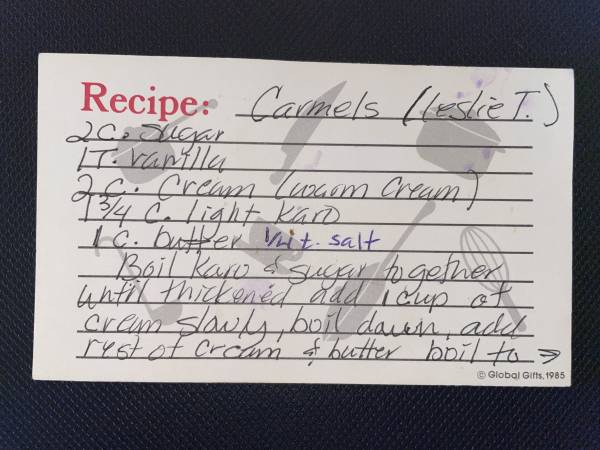 Recipe: Carmels (Leslie T.)
2 c. sugar
1 T. vanilla
2 c. Cream (warm cream)
1 3/4 c. light Karo
1 c. butter 1/4 t. salt
Boil Karo & sugar together
until thickened add 1 cup of
cream slowly, boil down, add
rest of cream & butter boil to →
© Global Gifts, 1985